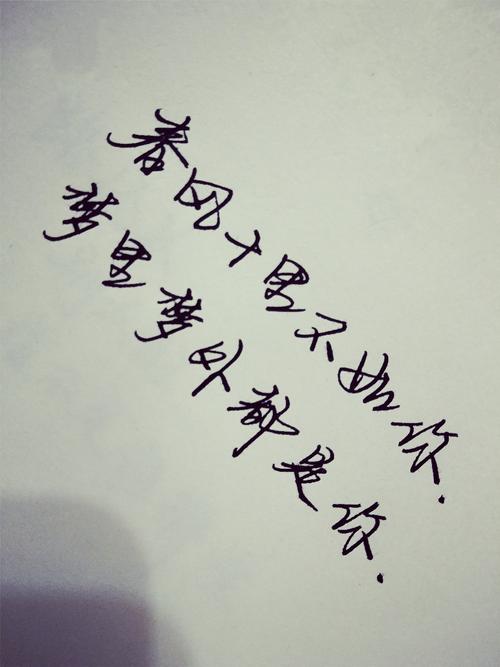 春风十里不如你.
梦里梦外都是你.